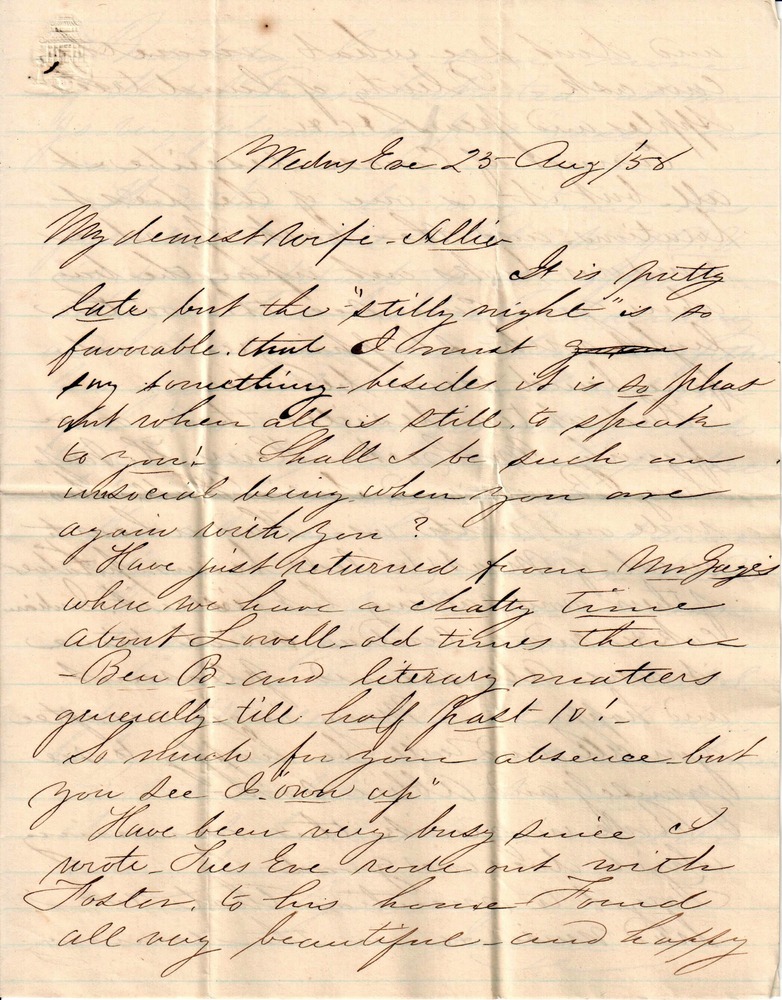 Wednes Eve 25 Aug /58
My dearest Wife - Allie
It is pretty
late but the "stilly night" is so
favorable. that I must
say something - besides it is so pleas
ant when all is still, to speak
to you! Shall I be such an
unsocial being when you are
again with you?
Have just returned from Mr Gage's
where we have a chatty time
about Lowell - old times there
- Ben B - and literary matters
generally - till half past 10! -
So much for your absence - but
you see I "own up"
Have been very busy since I
wrote - Tues Eve rode out with
Foster, to his house Found
all very beautiful - and happy